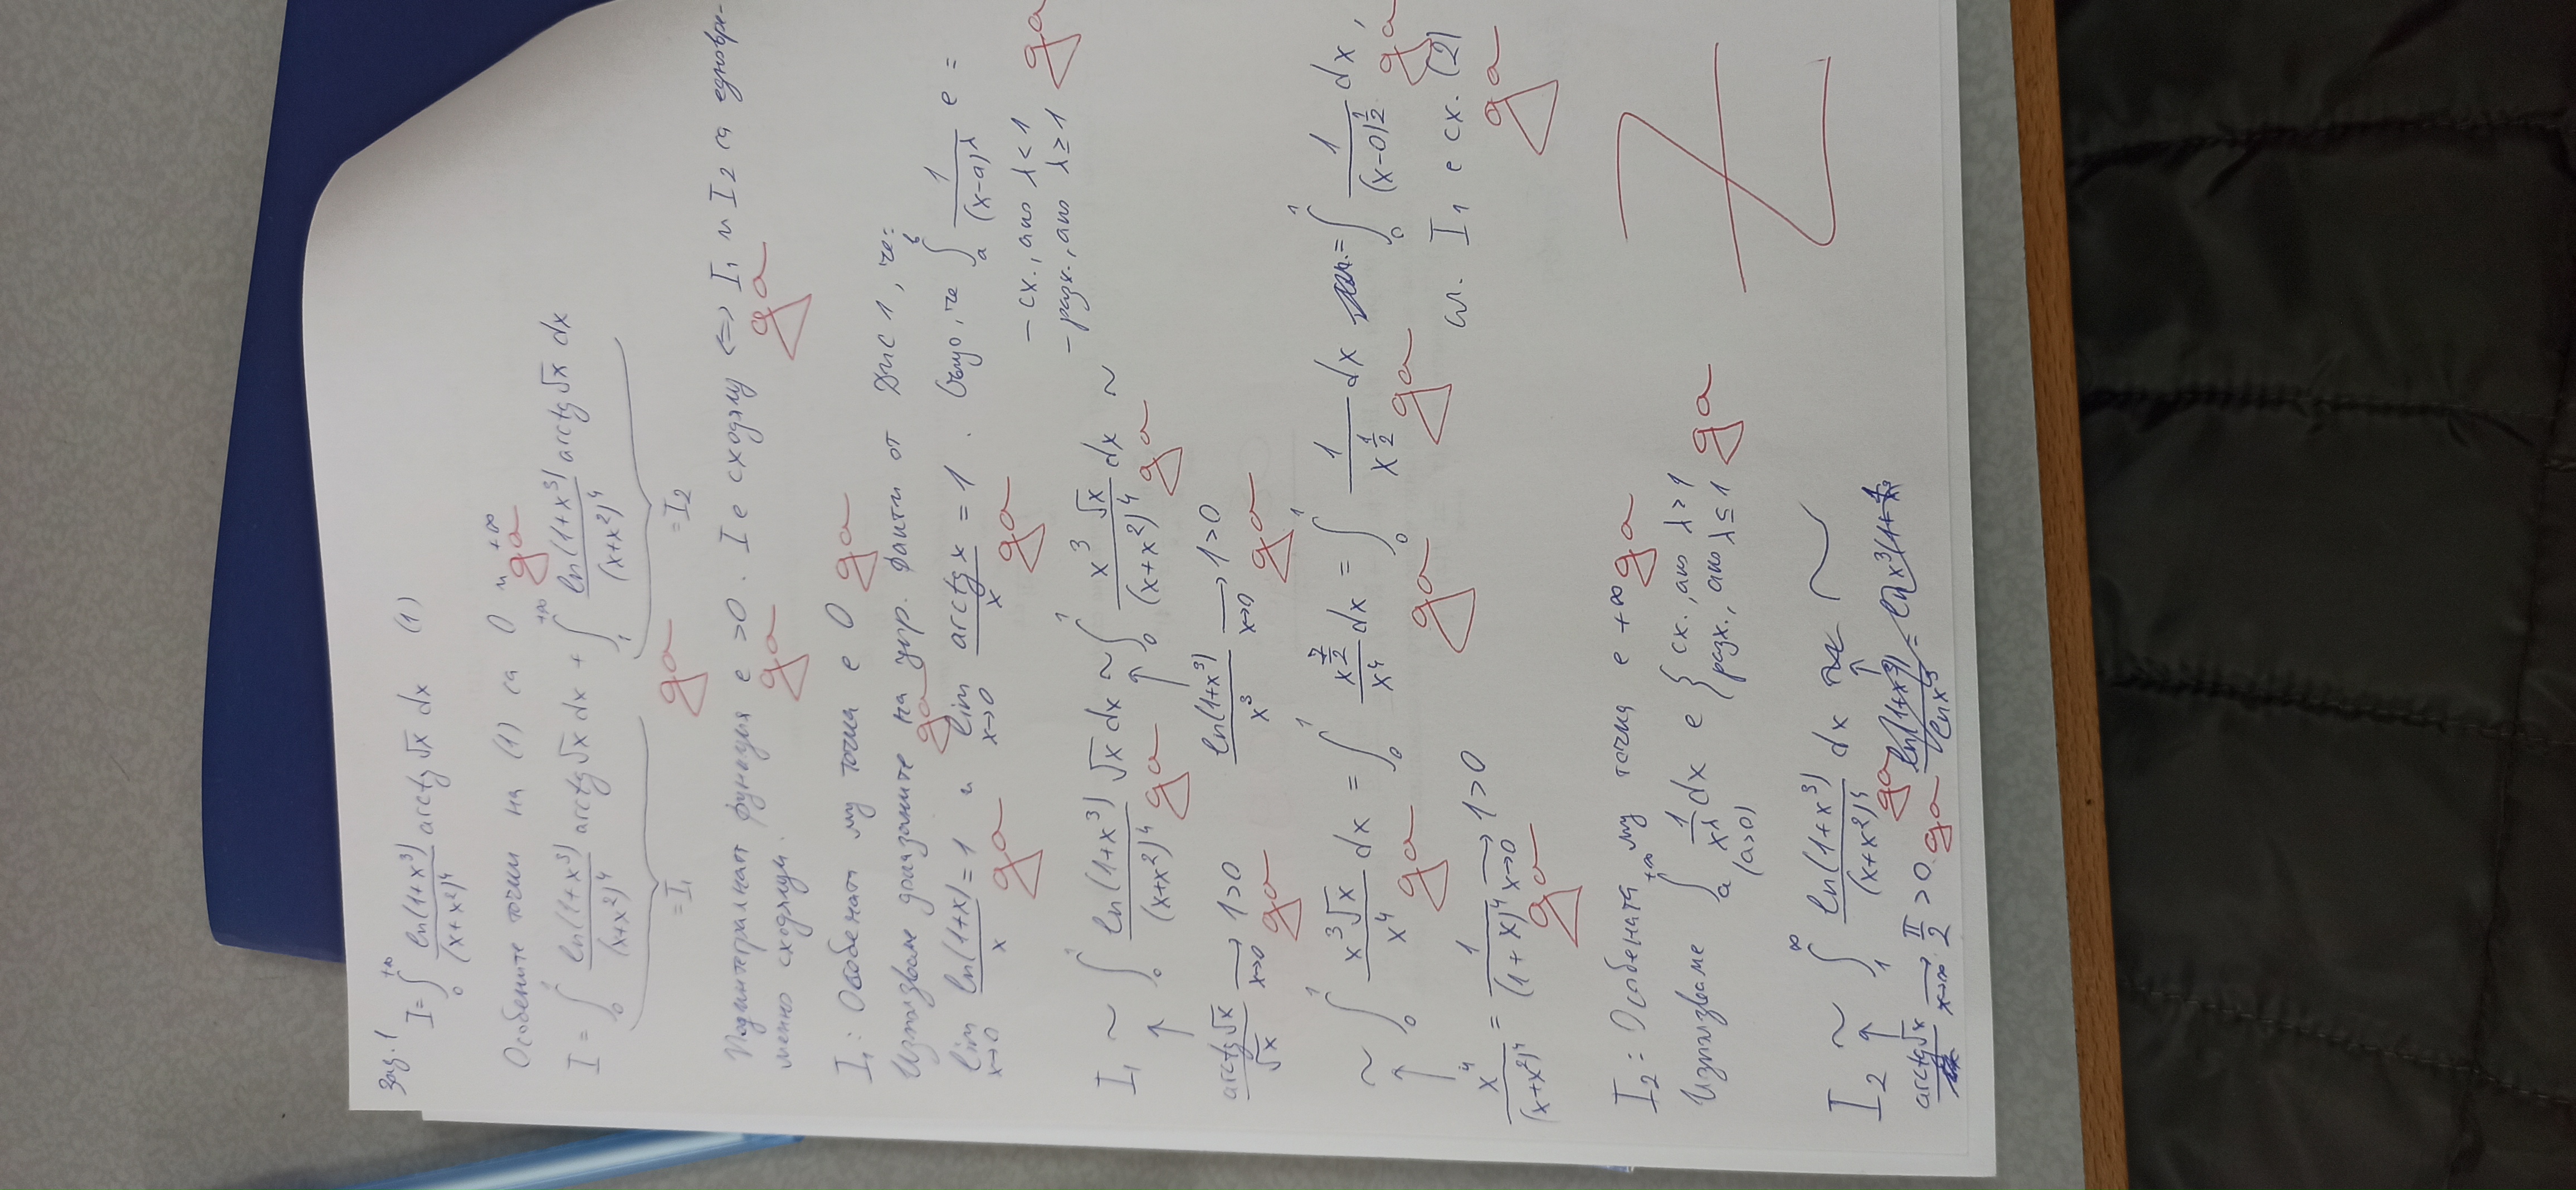 Зад. 1
I = ∫₀^{+∞} ln(1+x³)/(x+x²)⁴ arctg √x dx (1)
Особените точки на (1) са 0 и +∞ да
I = ∫₀^1 ln(1+x³)/(x+x²)⁴ arctg √x dx + ∫₁^{+∞} ln(1+x³)/(x+x²)⁴ arctg √x dx
= I₁ да = I₂
Подинтегралната функция е >0. I е сходящ ⇔ I₁ и I₂ са едновре-
да да
менно сходящи.
I₁: Особената му точка е 0 да
Използваме доказаните на упр. факти от ДИС 1, че:
да
lim_{x→0} ln(1+x)/x = 1 и lim_{x→0} arctg x/x = 1. Също, че ∫ₐ^b 1/(x-a)^λ е =
да да
- сх., ако λ < 1
- разх., ако λ ≥ 1 да
I₁ ~ ∫₀^1 ln(1+x³)/(x+x²)⁴ √x dx ~ ∫₀^1 x³ √x/(x+x²)⁴ dx ~
да да
↑ ↑
arctg √x/√x →_{x→0} 1>0 ln(1+x³)/x³ →_{x→0} 1>0
да да
~ ∫₀^1 x³√x/x⁴ dx = ∫₀^1 x^{7/2}/x⁴ dx = ∫₀^1 1/x^{1/2} dx = ∫₀^1 1/(x-0)^{1/2} dx,
да да да да
↑ сл. I₁ е сх. (2)
да
x⁴/(x+x²)⁴ = 1/(1+x)⁴ →_{x→0} 1>0
да
I₂: Особената му точка е +∞ да
Използваме ∫ₐ^{+∞} 1/x^λ dx е { сх., ако λ > 1
(a>0) разх., ако λ ≤ 1 да
I₂ ~ ∫₁^∞ ln(1+x³)/(x+x²)⁴ dx ~
да
↑ ↑
arctg √x →_{x→∞} π/2 >0 да ln(1+x³)/ln x³ = ln x³(1+
Z